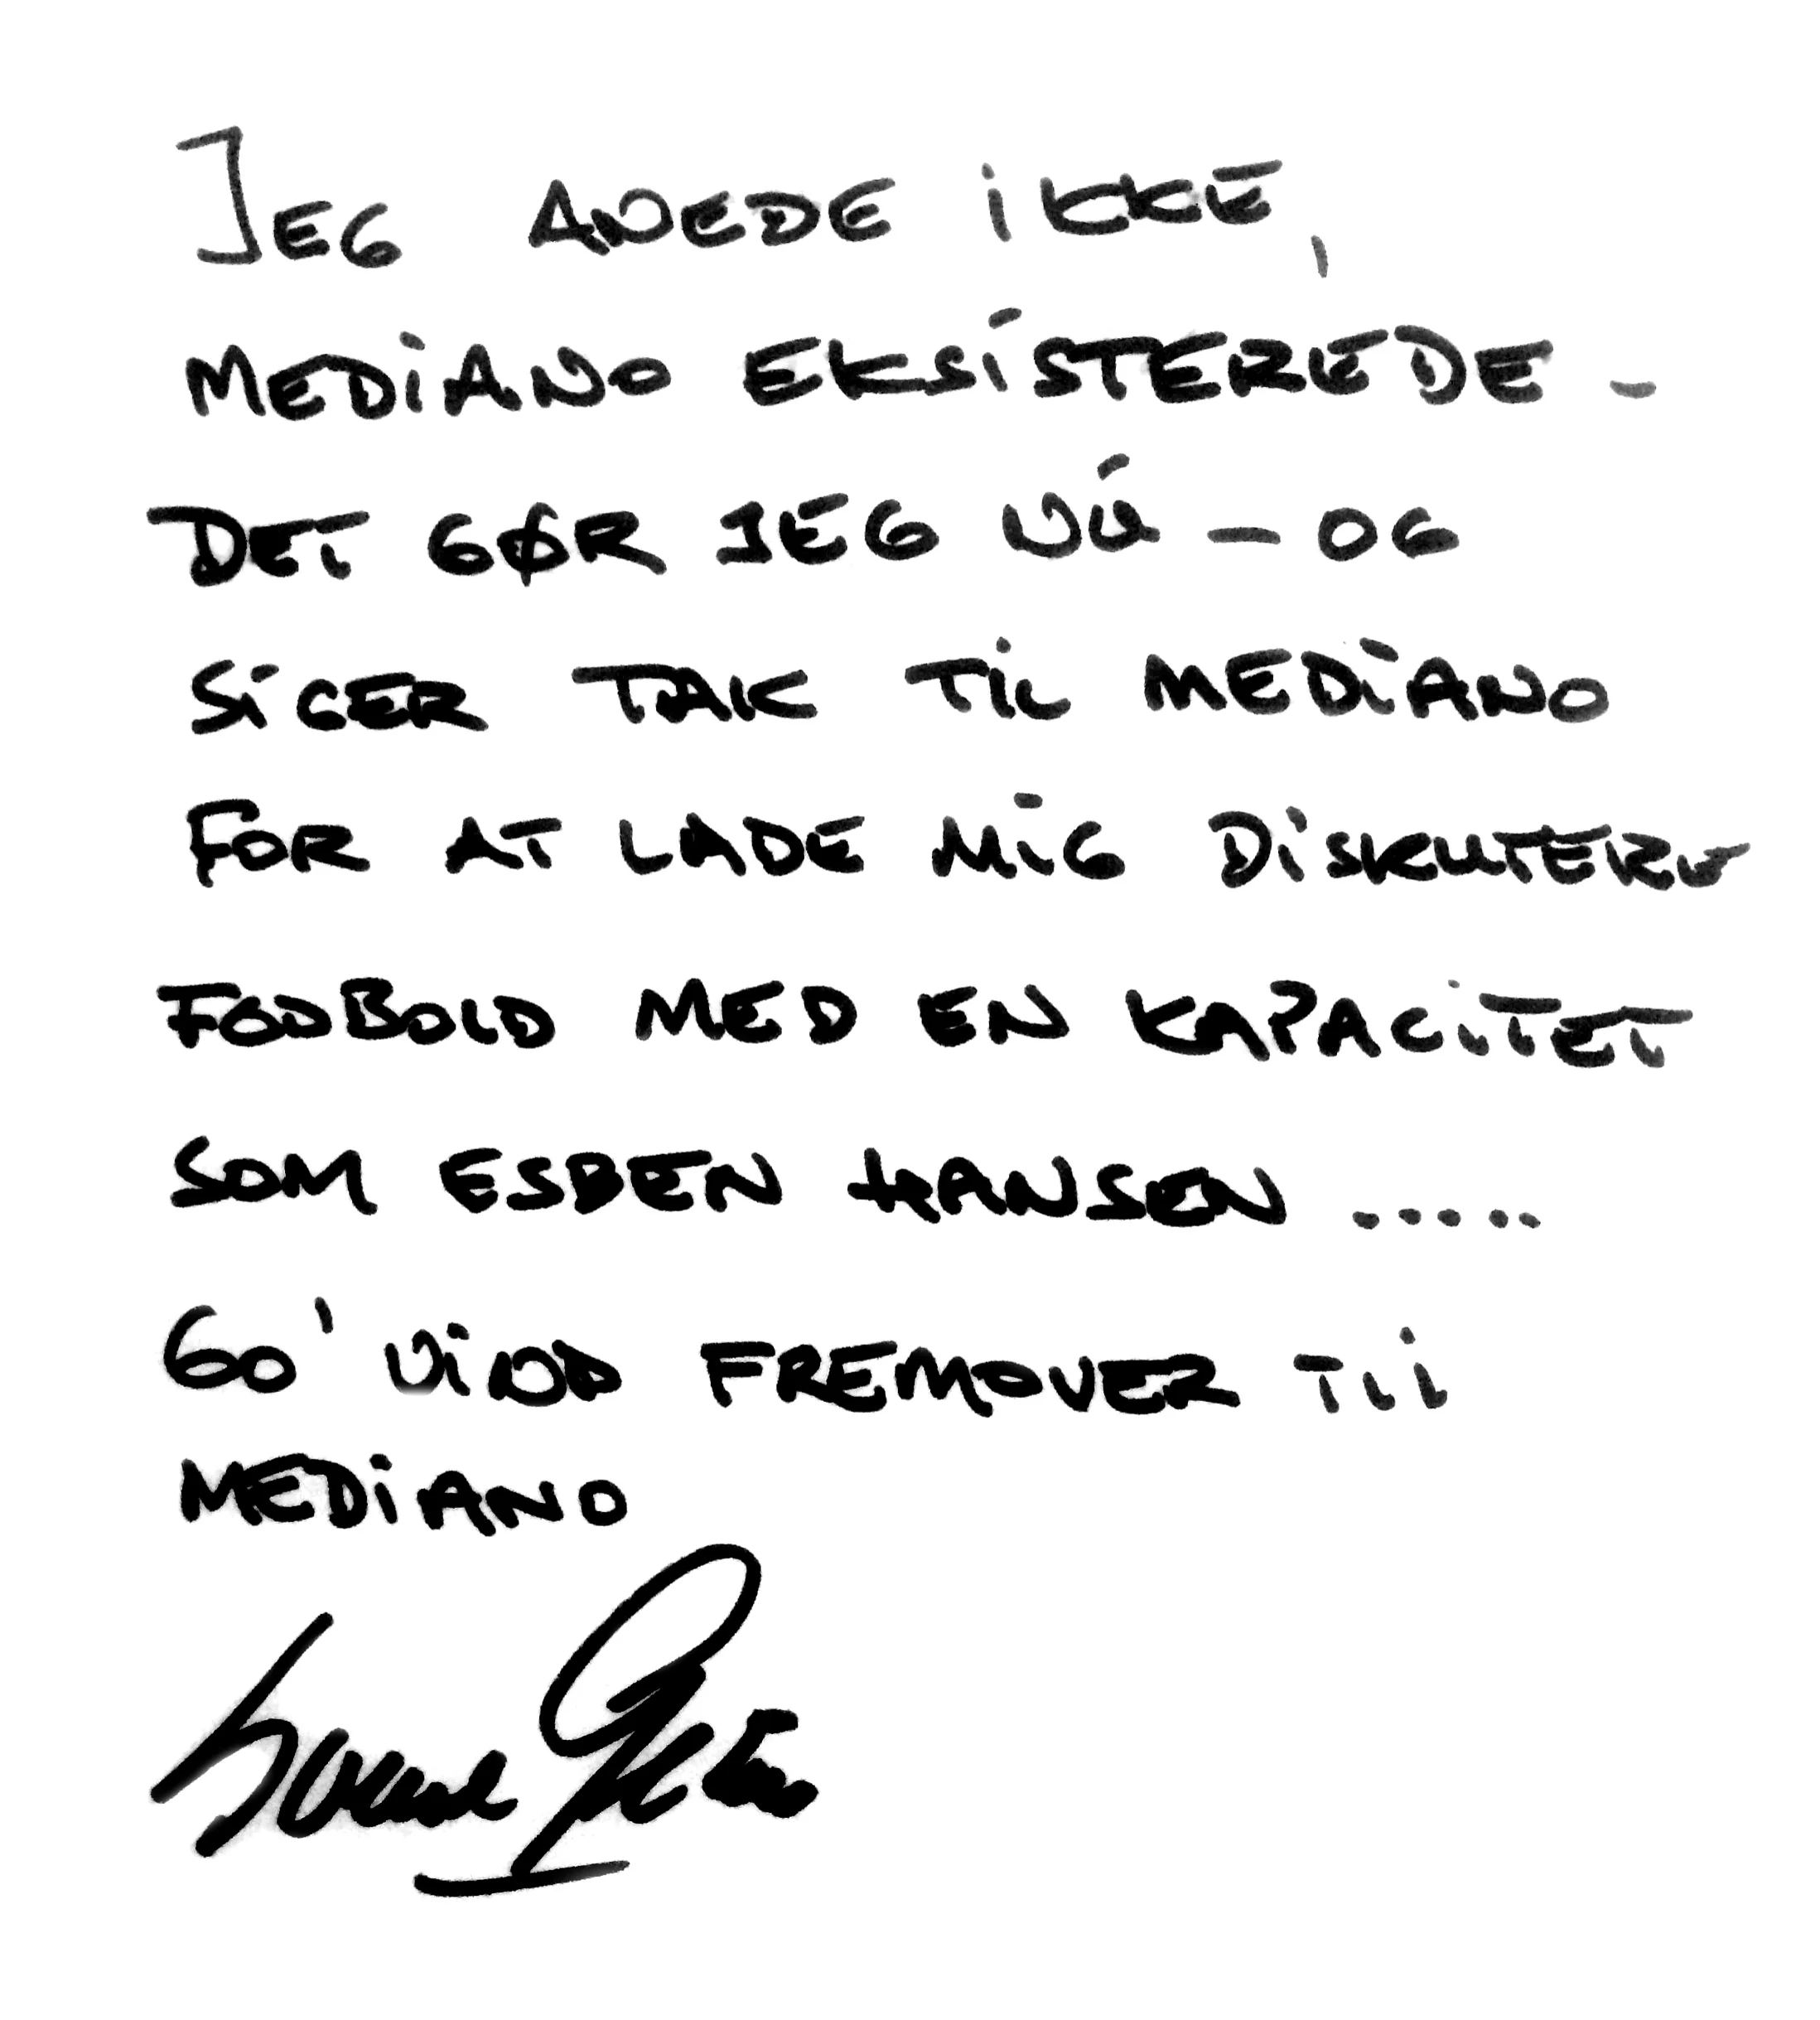 JEG ANEDE iKKE,
MEDiANO EKSiSTEREDE -
DET GØR JEG NÚ - OG
SiGER TAK TiL MEDiANO
FOR AT LADE MiG DiSKUTERE
FODBOLD MED EN KAPACiTET
SOM ESBEN HANSEN .....
GO' ViND FREMOVER TiL
MEDiANO